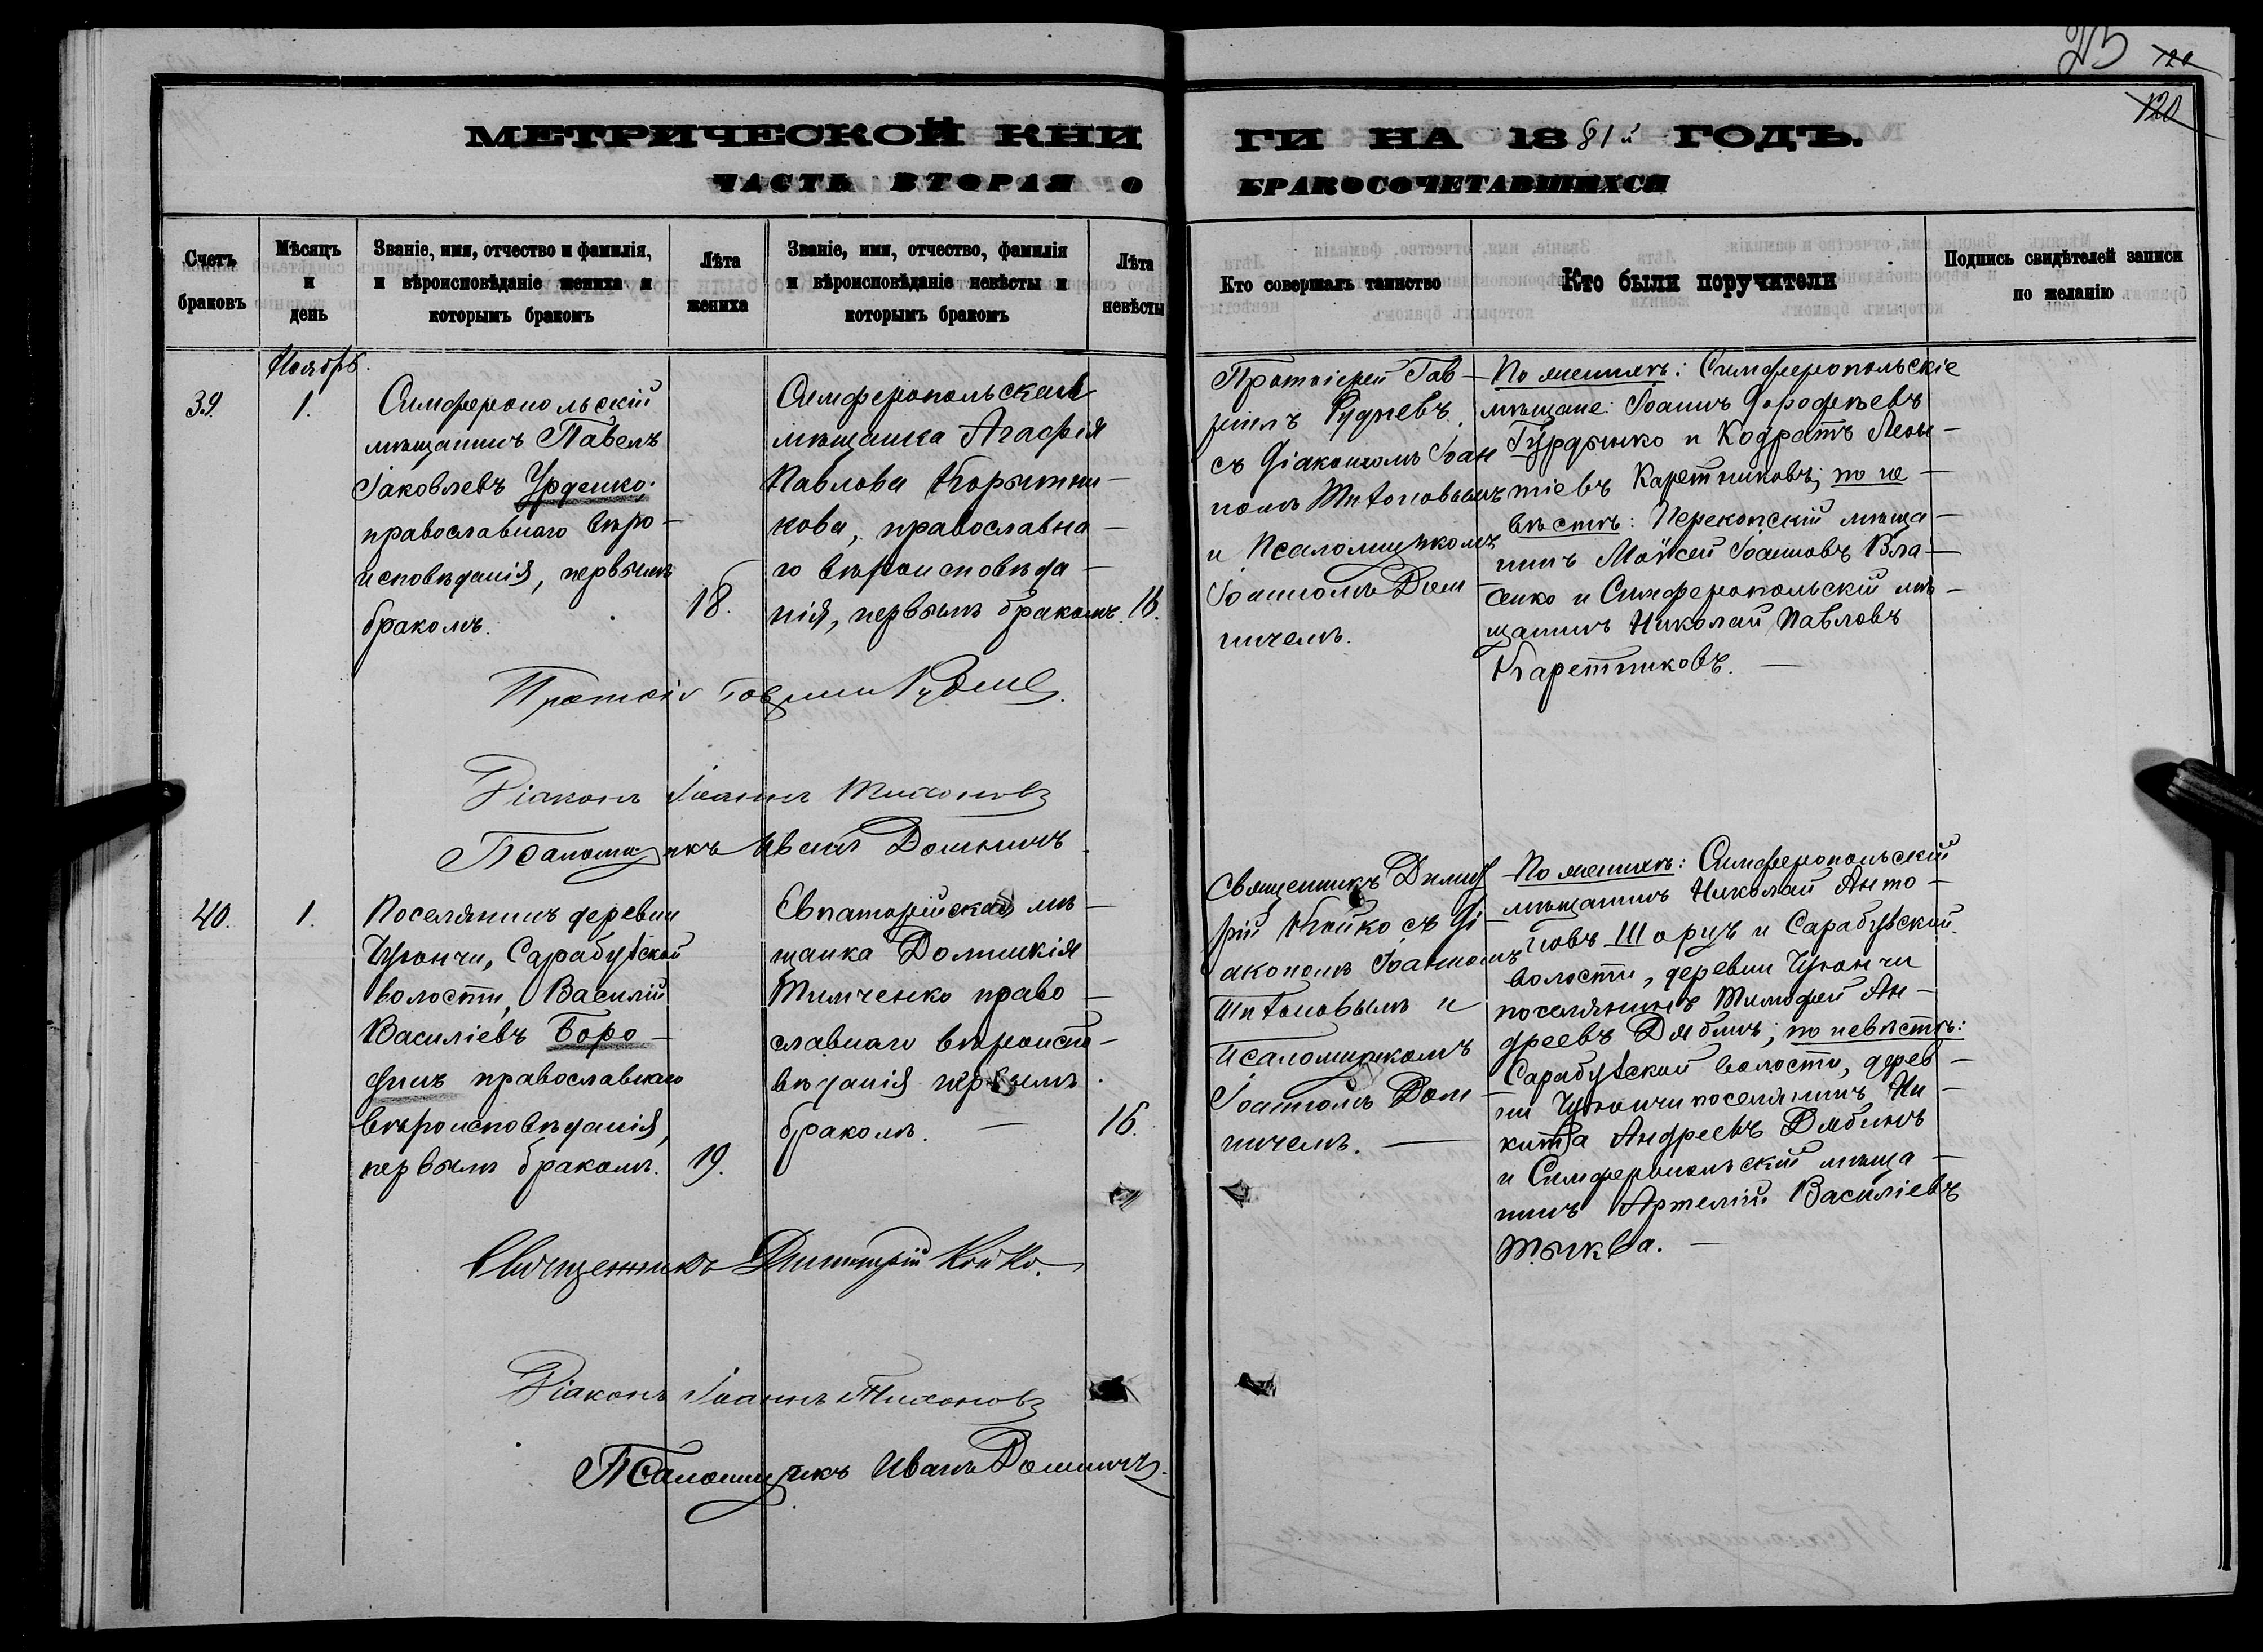 25 120
120
МЕТРИЧЕСКОЙ КНИ
ГИ НА 1881й ГОДЪ.
ЧАСТЬ ВТОРАЯ О
БРАКОСОЧЕТАВШИХСЯ
Счетъ
браковъ
Мѣсяцъ
и
день
Званіе, имя, отчество и фамилія,
и вѣроисповѣданіе жениха и
которымъ бракомъ
Лѣта
жениха
Званіе, имя, отчество, фамилія
и вѣроисповѣданіе невѣсты и
которымъ бракомъ
Лѣта
невѣсты
Кто совершалъ таинство
Кто были поручители
Подпись свидѣтелей записи
по желанію
39.
Ноябрь.
1.
Симферопольскій
мѣщанинъ Павелъ
Іаковлевъ Урденко
православнаго вѣро-
исповѣданія, первымъ
бракомъ.
18.
Симферопольская
мѣщанка Агафія
Павлова Корытни-
кова, православна-
го вѣроисповѣда-
нія, первымъ бракомъ.
16.
Протоіерей Гав-
ріилъ Рудневъ
съ Діакономъ Іоан
номъ Тихоновымъ
и Псаломщикомъ
Іоанномъ Дом
ничемъ.
По женихѣ: Симферопольскіе
мѣщане: Іоаннъ Дорофѣевъ
и Кодратъ Леон-
тіевъ Каретниковъ; по не-
вѣстѣ: Перекопскій мѣща-
нинъ Моѵсей Іоанновъ Вла-
сенко и Симферопольскій мѣ-
щанинъ Николай Павловъ
Каретниковъ. —
Протоіер Гавріилъ Рудневъ.
Діаконъ Іоаннъ Тихоновъ
Псаломщикъ Иванъ Домничъ.
40.
1.
Поселянинъ деревни
Чуюнчи, Сарабузской
волости, Василій
Василіевъ Боро-
динъ православнаго
вѣроисповѣданія,
первымъ бракомъ.
19.
Евпаторійская мѣ-
щанка Домникія
Тимченко право-
славнаго вѣроиспо-
вѣданія первымъ
бракомъ. —
16.
Священникъ Димит
рій Койко съ Ді-
акономъ Іоанномъ
Тихоновымъ и
Псаломщикомъ
Іоанномъ Дом-
ничемъ. —
По женихѣ: Симферопольскій
мѣщанинъ Николай Анто-
новъ и Сарабузской
волости, деревни Чуюнчи
поселянинъ Тимофей Ан-
дреевъ Дябинъ; по невѣстѣ:
Сарабузской волости, дерев-
ни Чуюнчи поселянинъ Ни-
кита Андреевъ Дябинъ
и Симферопольскій мѣща-
нинъ Артемій Василіевъ
Тыква. —
Священникъ Димитрій Койко.
Діаконъ Іоаннъ Тихоновъ
Псаломщикъ Иванъ Домничъ.